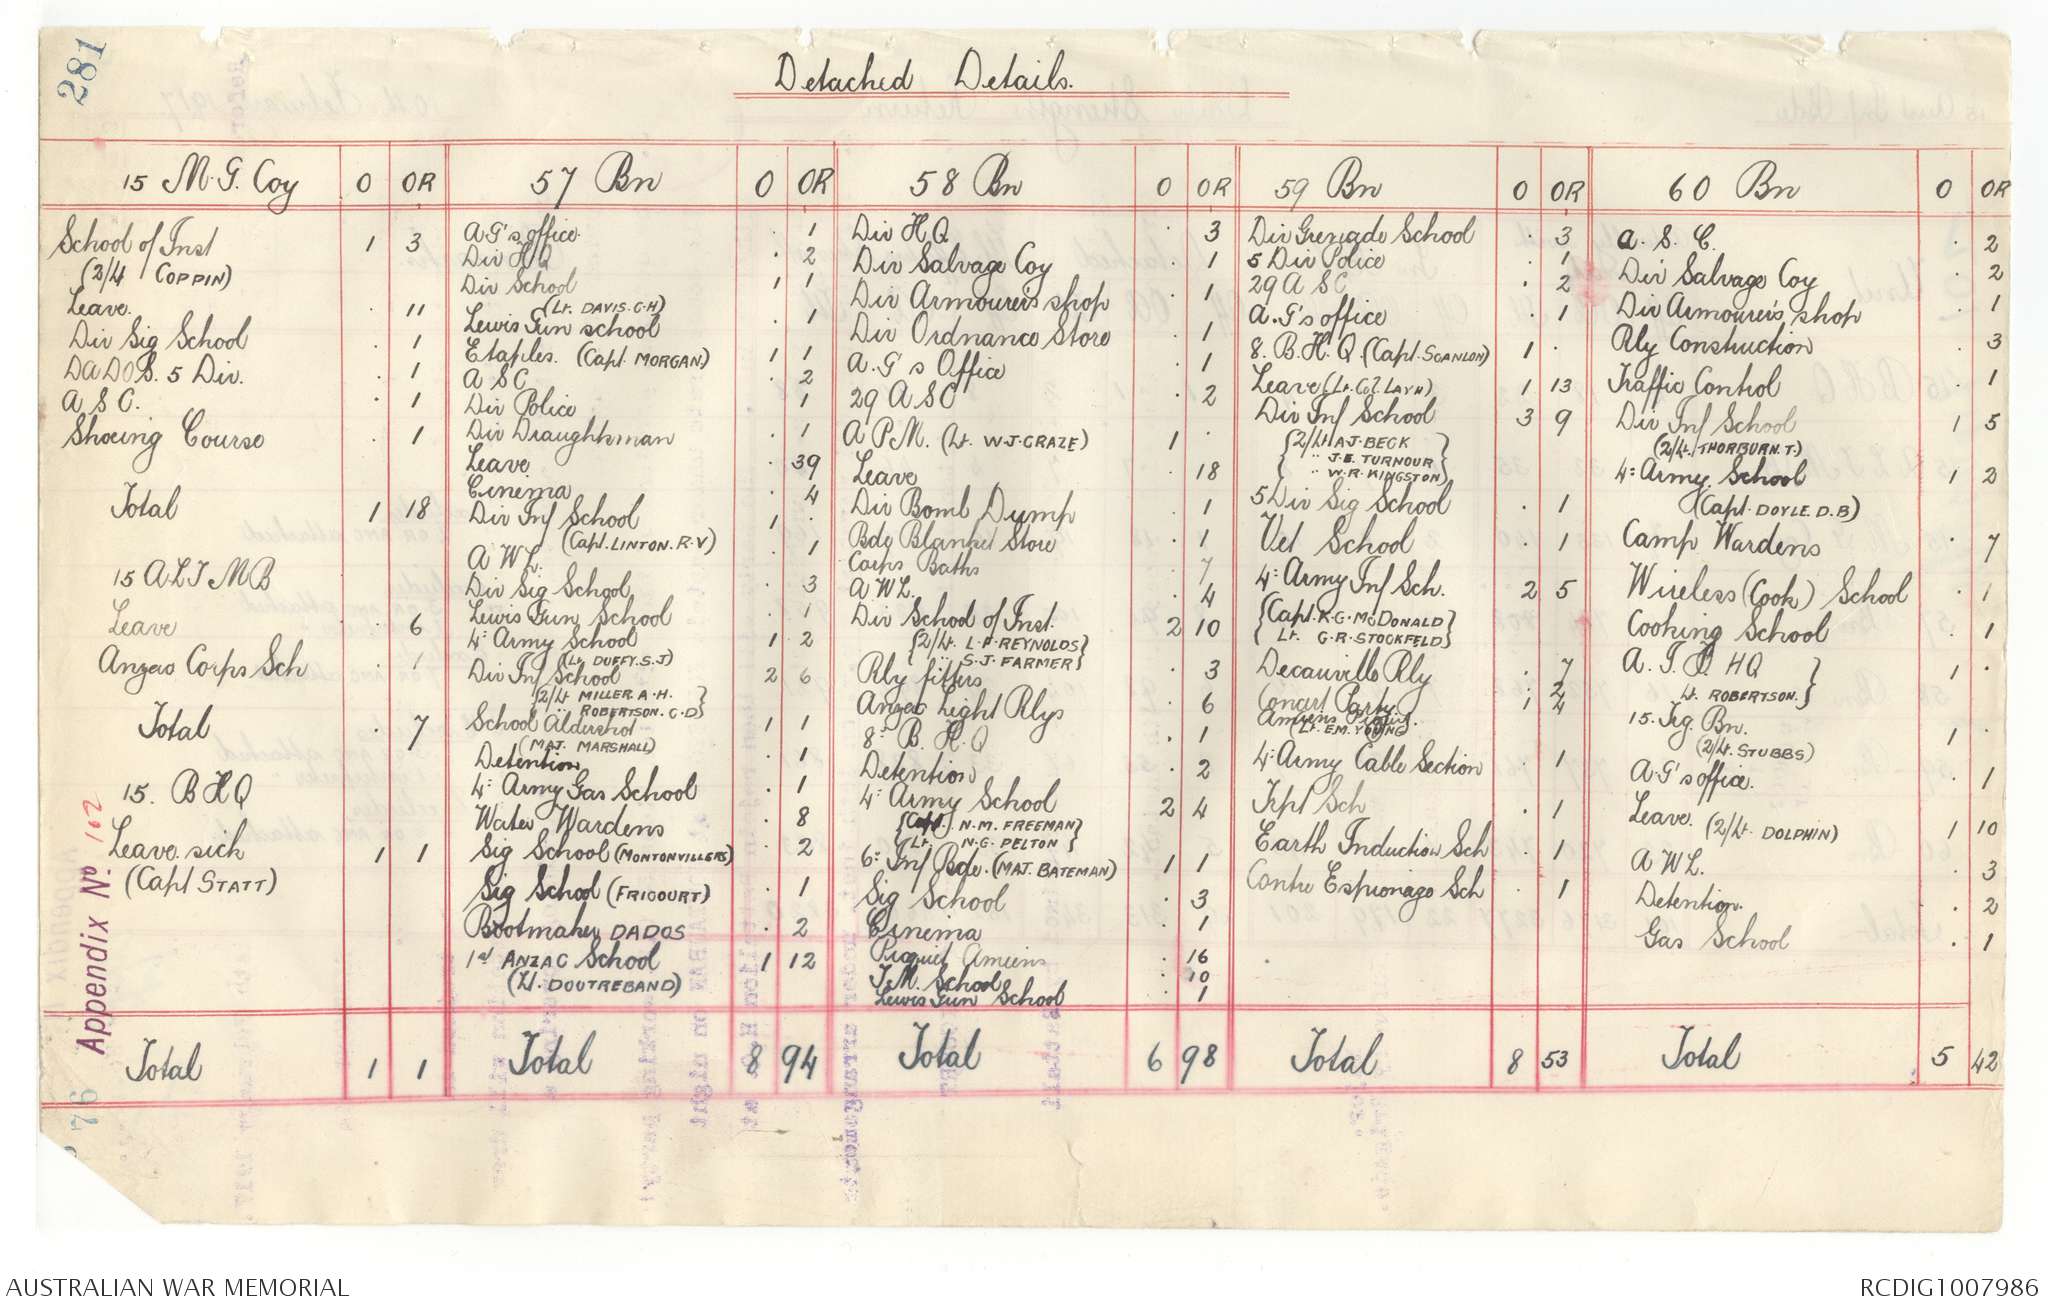 281
Detached Details.
15 M.G. Coy O OR
School of Inst 1 3
(2/Lt COPPIN)
Leave. . 11
Div Sig School . 1
DADOS. 5 Div. . 1
A S C. . 1
Shoeing Course . 1
Total 1 18
15 A L T M B
Leave . 6
Anzac Corps Sch . 1
Total . 7
15. B H Q
Leave sick 1 1
(Capt STATT)
Total 1 1
57 Bn O OR
A G's office . 1
Div H Q . 2
Div School 1 1
(Lt. DAVIS. C. H)
Lewis Gun school . 1
Etaples. (Capt. MORGAN) 1 1
A S C . 2
Div Police . 1
Div Draughtsman . 1
Leave . 39
Cinema . 4
Div Inf School 1 .
(Capt. LINTON. R. V)
A W L. . 1
Div Sig School . 3
Lewis Gun School . 1
4: Army School 1 2
(Lt DUFFY. S. J)
Div Inf School 2 6
{2/Lt MILLER A. H. }
{ " ROBERTSON. C. D}
School Aldershot 1 1
(MAJ. MARSHALL)
Detention . 1
4: Army Gas School . 1
Water Wardens . 8
Sig School (MONTONVILLERS) . 2
Sig School (FRICOURT) . 1
Bootmaker DADOS . 2
1st ANZAC School 1 12
(Lt. DOUTREBAND)
Total 8 94
58 Bn O OR
Div H Q . 3
Div Salvage Coy . 1
Div Armourers shop . 1
Div Ordnance Store . 1
A. G's Office . 1
29 A S C . 2
A P M. (Lt. W. J. GRAZE) 1 .
Leave . 18
Div Bomb Dump . 1
Bde Blanket Store . 1
Corps Baths . 7
A W L. . 4
Div School of Inst. 2 10
{2/Lt. L. P. REYNOLDS}
{ " S. J. FARMER}
Rly fitters . 3
Anzac Light Rlys . 6
8: B. H. Q . 1
Detention . 2
4: Army School 2 4
{Capt. N. M. FREEMAN}
{Lt. N. G. PELTON }
6: Inf Bde. (MAJ. BATEMAN) 1 1
Sig School . 3
Cinema . 1
Picquet Amiens . 16
T. M. School . 10
Lewis Gun School . 1
Total 6 98
59 Bn O OR
Div Grenade School . 3
5 Div Police . 1
29 A S C . 2
A. G's office . 1
8. B. H. Q. (Capt. SCANLON) 1 .
Leave (Lt. Col. LAYH) 1 13
Div Inf School 3 9
{2/Lt A. J. BECK }
{ " J. E. TURNOUR }
{ " W. R. KINGSTON}
5 Div Sig School . 1
Vet School . 1
4: Army Inf Sch. 2 5
{Capt. K. G. McDONALD}
{Lt. G. R. STOCKFELD}
Decauville Rly . 7
Concert Party . 2
Amiens Picquet. 1 4
(Lt. E. M. YOUNG)
4: Army Cable Section . 1
Trpt Sch . 1
Earth Induction Sch . 1
Contre Espionage Sch . 1
Total 8 53
60 Bn O OR
A. S. C. . 2
Div Salvage Coy . 2
Div Armourer's shop . 1
Rly Construction . 3
Traffic Control . 1
Div Inf School 1 5
(2/Lt. THORBURN. T.)
4: Army School 1 2
(Capt. DOYLE. D. B)
Camp Wardens . 7
Wireless (Cook) School . 1
Cooking School . 1
A. I. F HQ 1 .
Lt. ROBERTSON. }
15. Trg. Bn. 1 .
(2/Lt. STUBBS)
A. G's office. . 1
Leave. (2/Lt. DOLPHIN) 1 10
A W L. . 3
Detention. . 2
Gas School . 1
Total 5 42
Appendix No. 102
76
AUSTRALIAN WAR MEMORIAL
RCDIG1007986